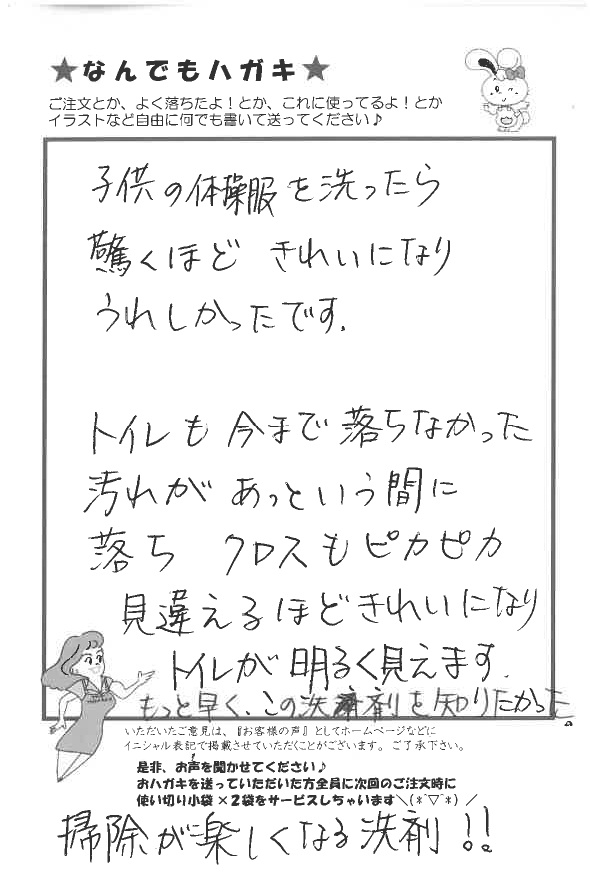 ★なんでもハガキ★
ご注文とか、よく落ちたよ！とか、これに使ってるよ！とか
イラストなど自由に何でも書いて送ってください♪
子供の体操服を洗ったら
驚くほど きれいになり
うれしかったです.
トイレも今まで落ちなかった
汚れが あっという間に
落ち クロスもピカピカ
見違えるほどきれいになり
トイレが明るく見えます.
もっと早く、この洗剤を知りたかった。
いただいたご意見は、『お客様の声』としてホームページなどに
イニシャル表記で掲載させていただくことがございます。ご了承下さい。
是非、お声を聞かせてください♪
おハガキを送っていただいた方全員に次回のご注文時に
使い切り小袋×2袋をサービスしちゃいます＼(*ﾟ▽ﾟ*)／
掃除が楽しくなる洗剤!!